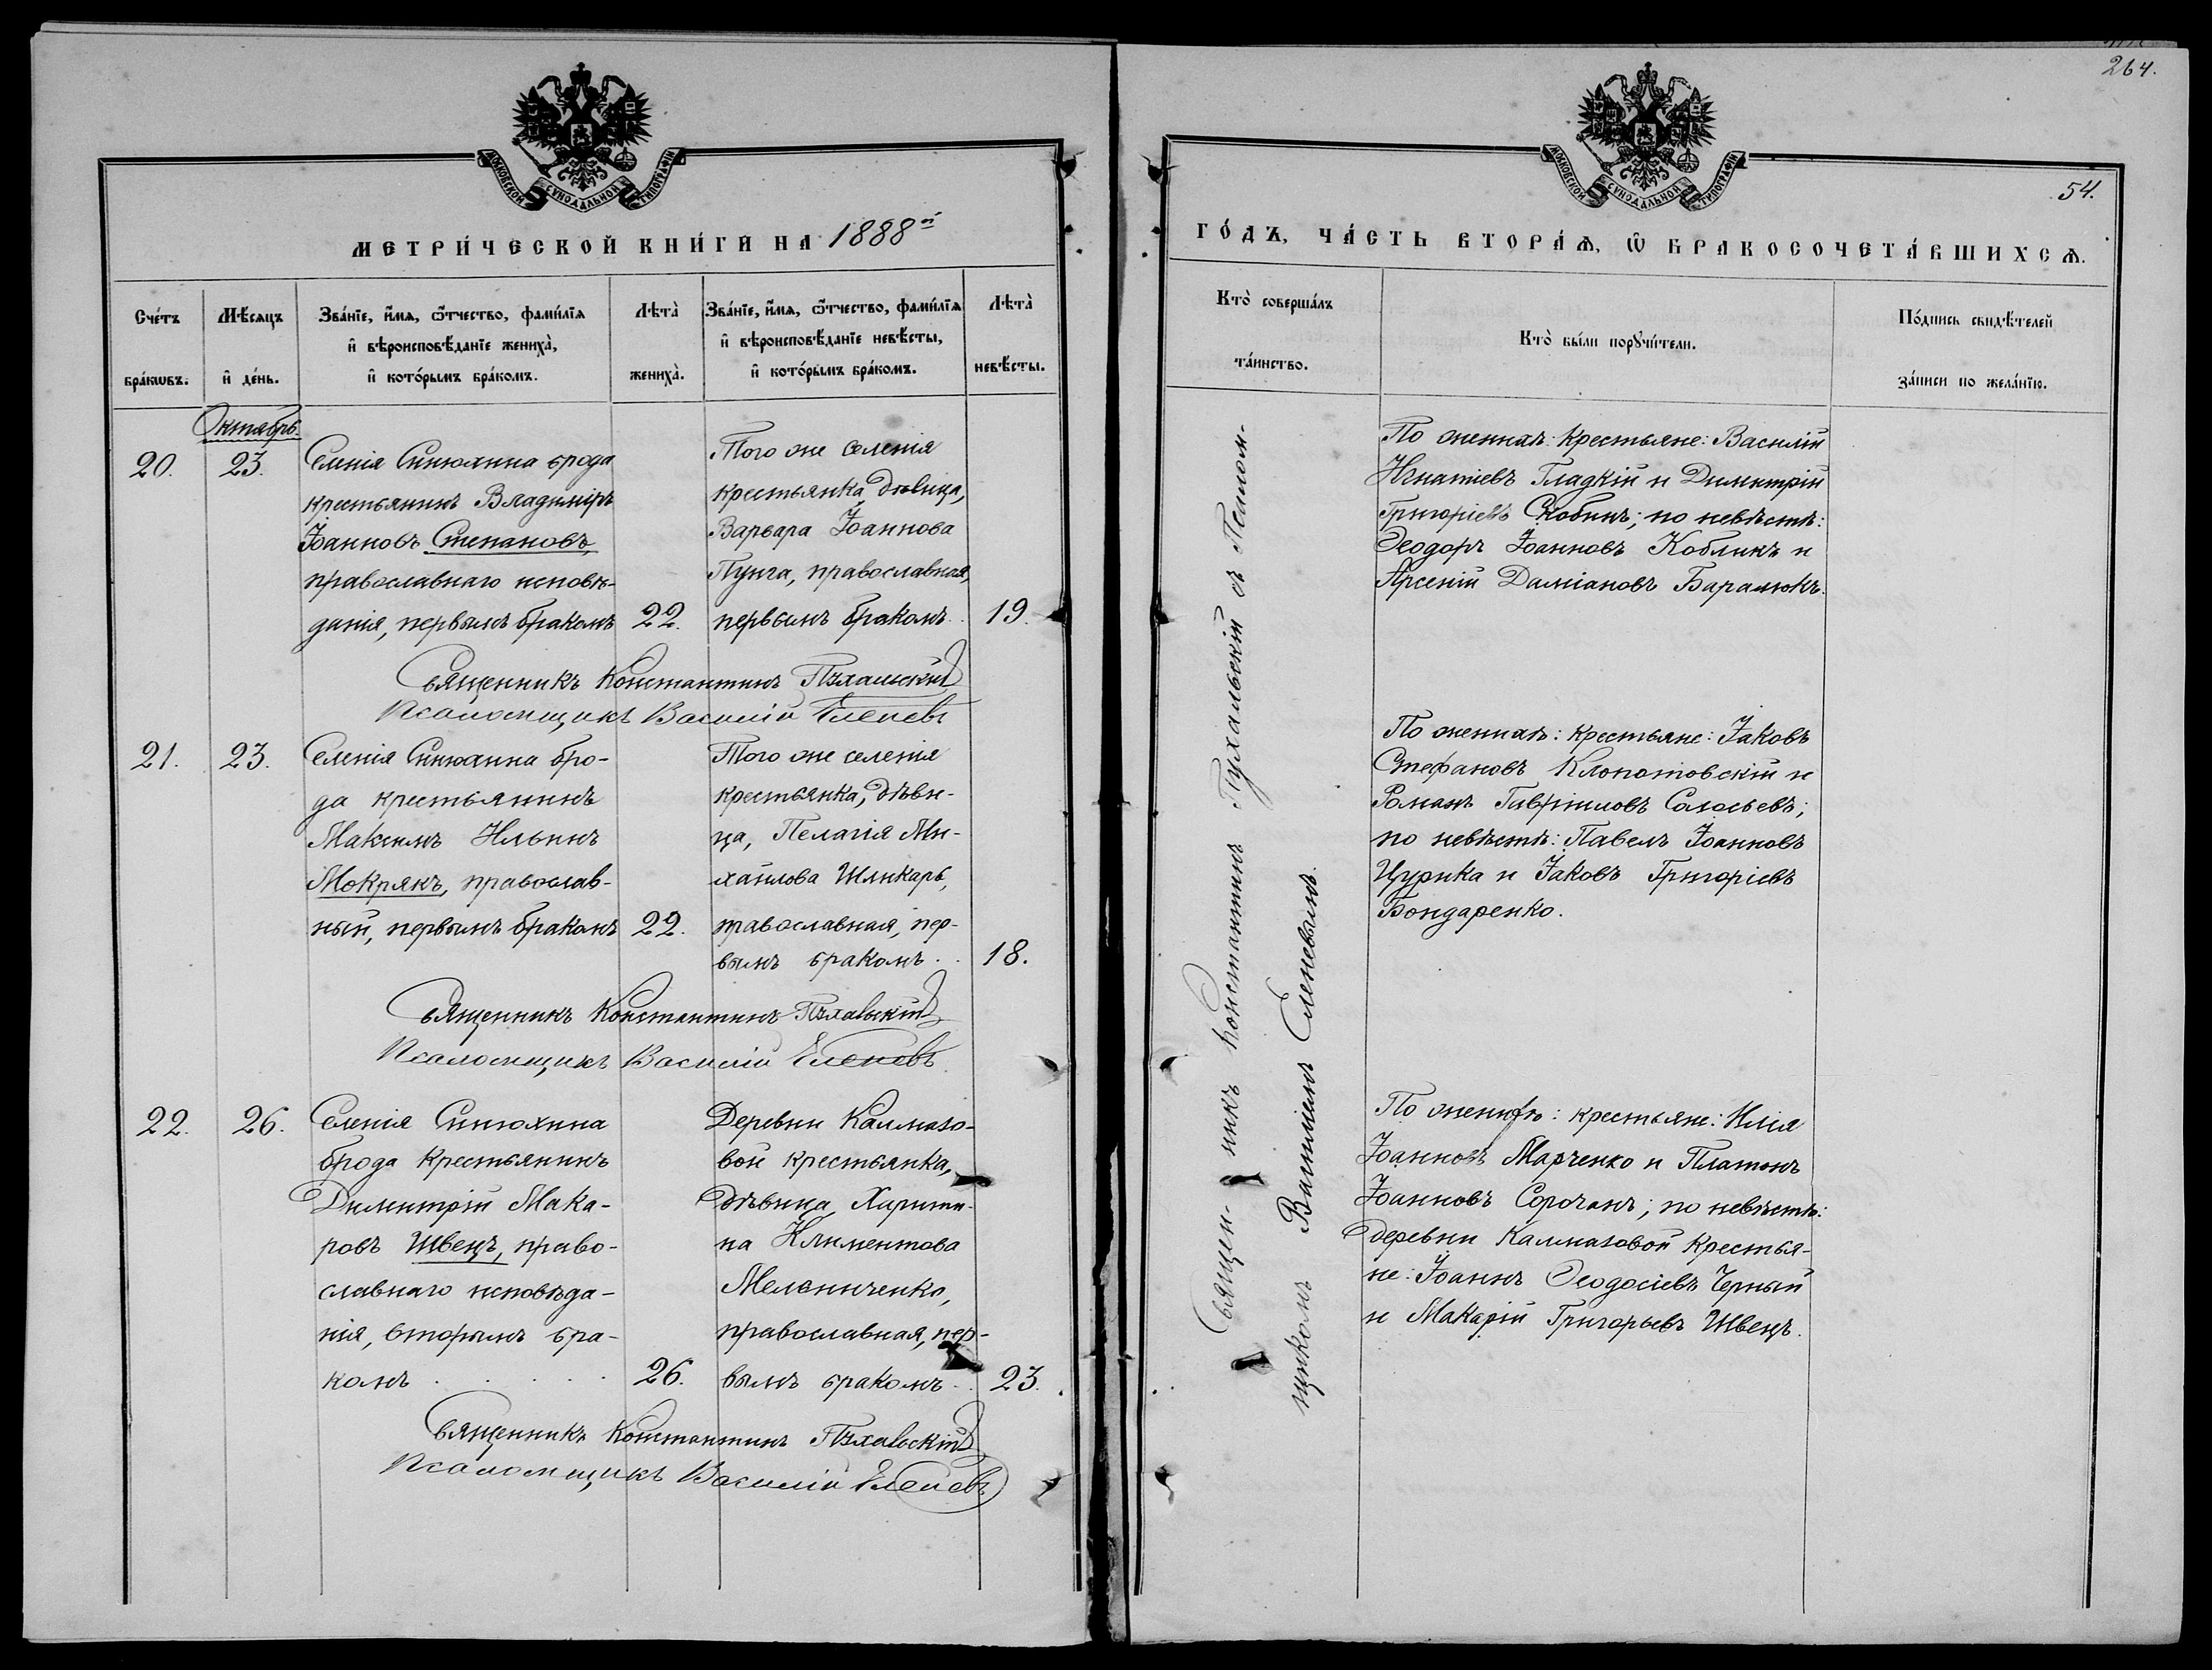 264.
МОСКОВСКОЙ СѴНОДАЛЬНОЙ ТИПОГРАФІИ
МЕТРИ́ЧЕСКОЙ КНИ́ГИ НА 1888й
Сче́тъ бра́кѡвъ.
Мѣ́сяцъ и҆ де́нь.
Зва́нїе, и҆́мѧ, ѻ҆́тчество, фами́лїѧ
и҆ вѣроисповѣ́данїе женихà,
и҆ кото́рымъ бра́комъ.
Лѣтà женихà.
Зва́нїе, и҆́мѧ, ѻ҆́тчество, фами́лїѧ
и҆ вѣроисповѣ́данїе невѣ́сты,
и҆ кото́рымъ бра́комъ.
Лѣтà невѣ́сты.
Октябрь.
20. 23.
Селенія Синюхина брода
крестьянинъ Владиміръ
Іоанновъ Степановъ,
православнаго исповѣ-
данія, первымъ бракомъ 22.
Того же селенія
крестьянка, дѣвица,
Варвара Іоаннова
Пунга, православная,
первымъ бракомъ. 19.
Священникъ Константинъ Пухальскій
Псаломщикъ Василій Еленевъ
21. 23.
Селенія Синюхина бро-
да крестьянинъ
Максимъ Ильинъ
Мокрякъ, православ-
ный, первымъ бракомъ 22.
Того же селенія
крестьянка, дѣви-
ца, Пелагія Ми-
хайлова Шликарь,
православная, пер-
вымъ бракомъ . . 18.
Священникъ Константинъ Пухальскій
Псаломщикъ Василій Еленевъ
22. 26.
Селенія Синюхина
брода крестьянинъ
Димитрій Мака-
ровъ Швецъ, право-
славнаго исповѣда-
нія, вторымъ бра-
комъ . . . . . 26.
Деревни Калмазо-
вой крестьянка,
дѣвица, Харити-
на Климентова
Мельниченко,
православная, пер-
вымъ бракомъ . . 23.
Священникъ Константинъ Пухальскій
Псаломщикъ Василій Еленевъ
МОСКОВСКОЙ СѴНОДАЛЬНОЙ ТИПОГРАФІИ
54.
ГО́ДЪ, ЧА́СТЬ ВТОРА́Ѧ, Ѡ҆ БРАКОСОЧЕТА́ВШИХСѦ.
Кто̀ соверша́лъ
та́инство.
Кто̀ бы́ли порꙋчи́тели.
По́дпись свидѣ́телей
за́писи по жела́нїю.
Священникъ Константинъ Пухальскій съ Псалом-
щикомъ Василіемъ Еленевымъ.
По женихѣ: крестьяне: Василій
Игнатіевъ Гладкій и Димитрій
Григоріевъ Скобинъ; по невѣстѣ:
Ѳеодоръ Іоанновъ Кобликъ и
Арсеній Даміановъ Баранюкъ.
По женихѣ: крестьяне: Іаковъ
Стефановъ Клопотовскій и
Романъ Гавріиловъ Соловьевъ;
по невѣстѣ: Павелъ Іоанновъ
Цурика и Іаковъ Григоріевъ
Бондаренко.
По женихѣ: крестьяне: Илія
Іоанновъ Марченко и Платонъ
Іоанновъ Сорочанъ; по невѣстѣ:
деревни Калмазовой крестья-
не: Іоаннъ Ѳеодосіевъ Черный
и Макарій Григорьевъ Швецъ.